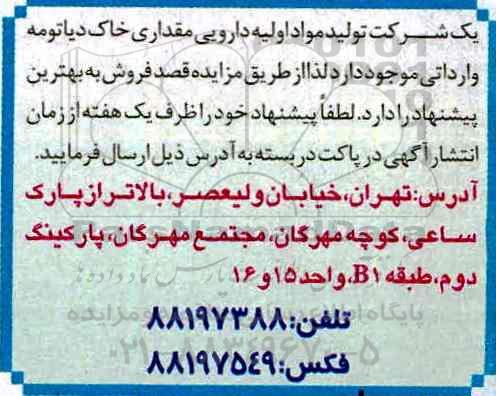 یک شرکت تولید مواد اولیه دارویی مقداری خاک دیاتومه
وارداتی موجود دارد لذا از طریق مزایده قصد فروش به بهترین
پیشنهاد را دارد. لطفاً پیشنهاد خود را ظرف یک هفته از زمان
انتشار آگهی در پاکت در بسته به آدرس ذیل ارسال فرمایید.
آدرس: تهران، خیابان ولیعصر، بالاتر از پارک
ساعی، کوچه مهرگان، مجتمع مهرگان، پارکینگ
دوم، طبقه B۱، واحد ۱۵ و ۱۶
تلفن: ۸۸۱۹۷۳۸۸
فکس: ۸۸۱۹۷۵۴۹